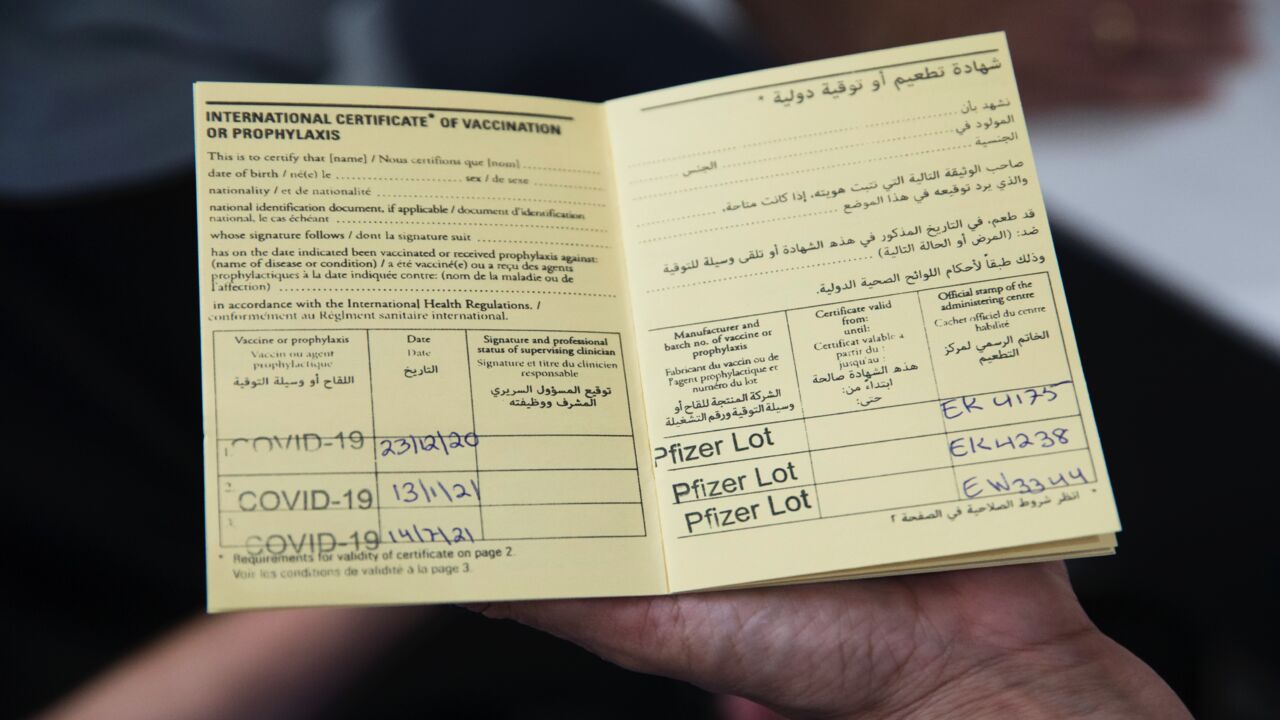 INTERNATIONAL CERTIFICATE* OF VACCINATION
OR PROPHYLAXIS
This is to certify that [name] / Nous certifions que [nom] ............
date of birth / né(e) le ............ sex / de sexe ............
nationality / et de nationalité ............
national identification document, if applicable / document d'identification
national, le cas échéant ............
whose signature follows / dont la signature suit ............
has on the date indicated been vaccinated or received prophylaxis against:
(name of disease or condition) / a été vacciné(e) ou a reçu des agents
prophylactiques à la date indiquée contre: (nom de la maladie ou de
l'affection) ............
in accordance with the International Health Regulations. /
conformément au Règlment sanitaire international.
Vaccine or prophylaxis
Vaccin ou agent
prophylactique
اللقاح أو وسيلة التوقية
Date
Date
التاريخ
Signature and professional
status of supervising clinician
Signature et titre du clinicien
responsable
توقيع المسؤول السريري
المشرف ووظيفته
1. COVID-19 23/12/20
2. COVID-19 13/1/21
3. COVID-19 14/7/21
* Requirements for validity of certificate on page 2.
Voir les conditions de validité à la page 3.
شهادة تطعيم أو توقية دولية *
نشهد بأن ............
المولود في ............
الجنسية ............ الجنس ............
صاحب الوثيقة التالية التي تثبت هويته، إذا كانت متاحة، ............
والذي يرد توقيعه في هذا الموضع ............
قد طعم، في التاريخ المذكور في هذه الشهادة أو تلقى وسيلة للتوقية
ضد: (المرض أو الحالة التالية) ............
وذلك طبقاً لأحكام اللوائح الصحية الدولية.
Manufacturer and
batch no. of vaccine or
prophylaxis
Fabricant du vaccin ou de
l'agent prophylactique et
numéro du lot
الشركة المنتجة للقاح أو
وسيلة التوقية ورقم التشغيلة
Certificate valid
from:
until:
Certificat valable à
partir du :
jusqu'au :
هذه الشهادة صالحة
ابتداءً من:
حتى:
Official stamp of the
administering centre
Cachet officiel du centre
habilité
الخاتم الرسمي لمركز
التطعيم
Pfizer Lot EK4175
Pfizer Lot EK4238
Pfizer Lot EW3344
* انظر شروط الصلاحية في الصفحة ٢